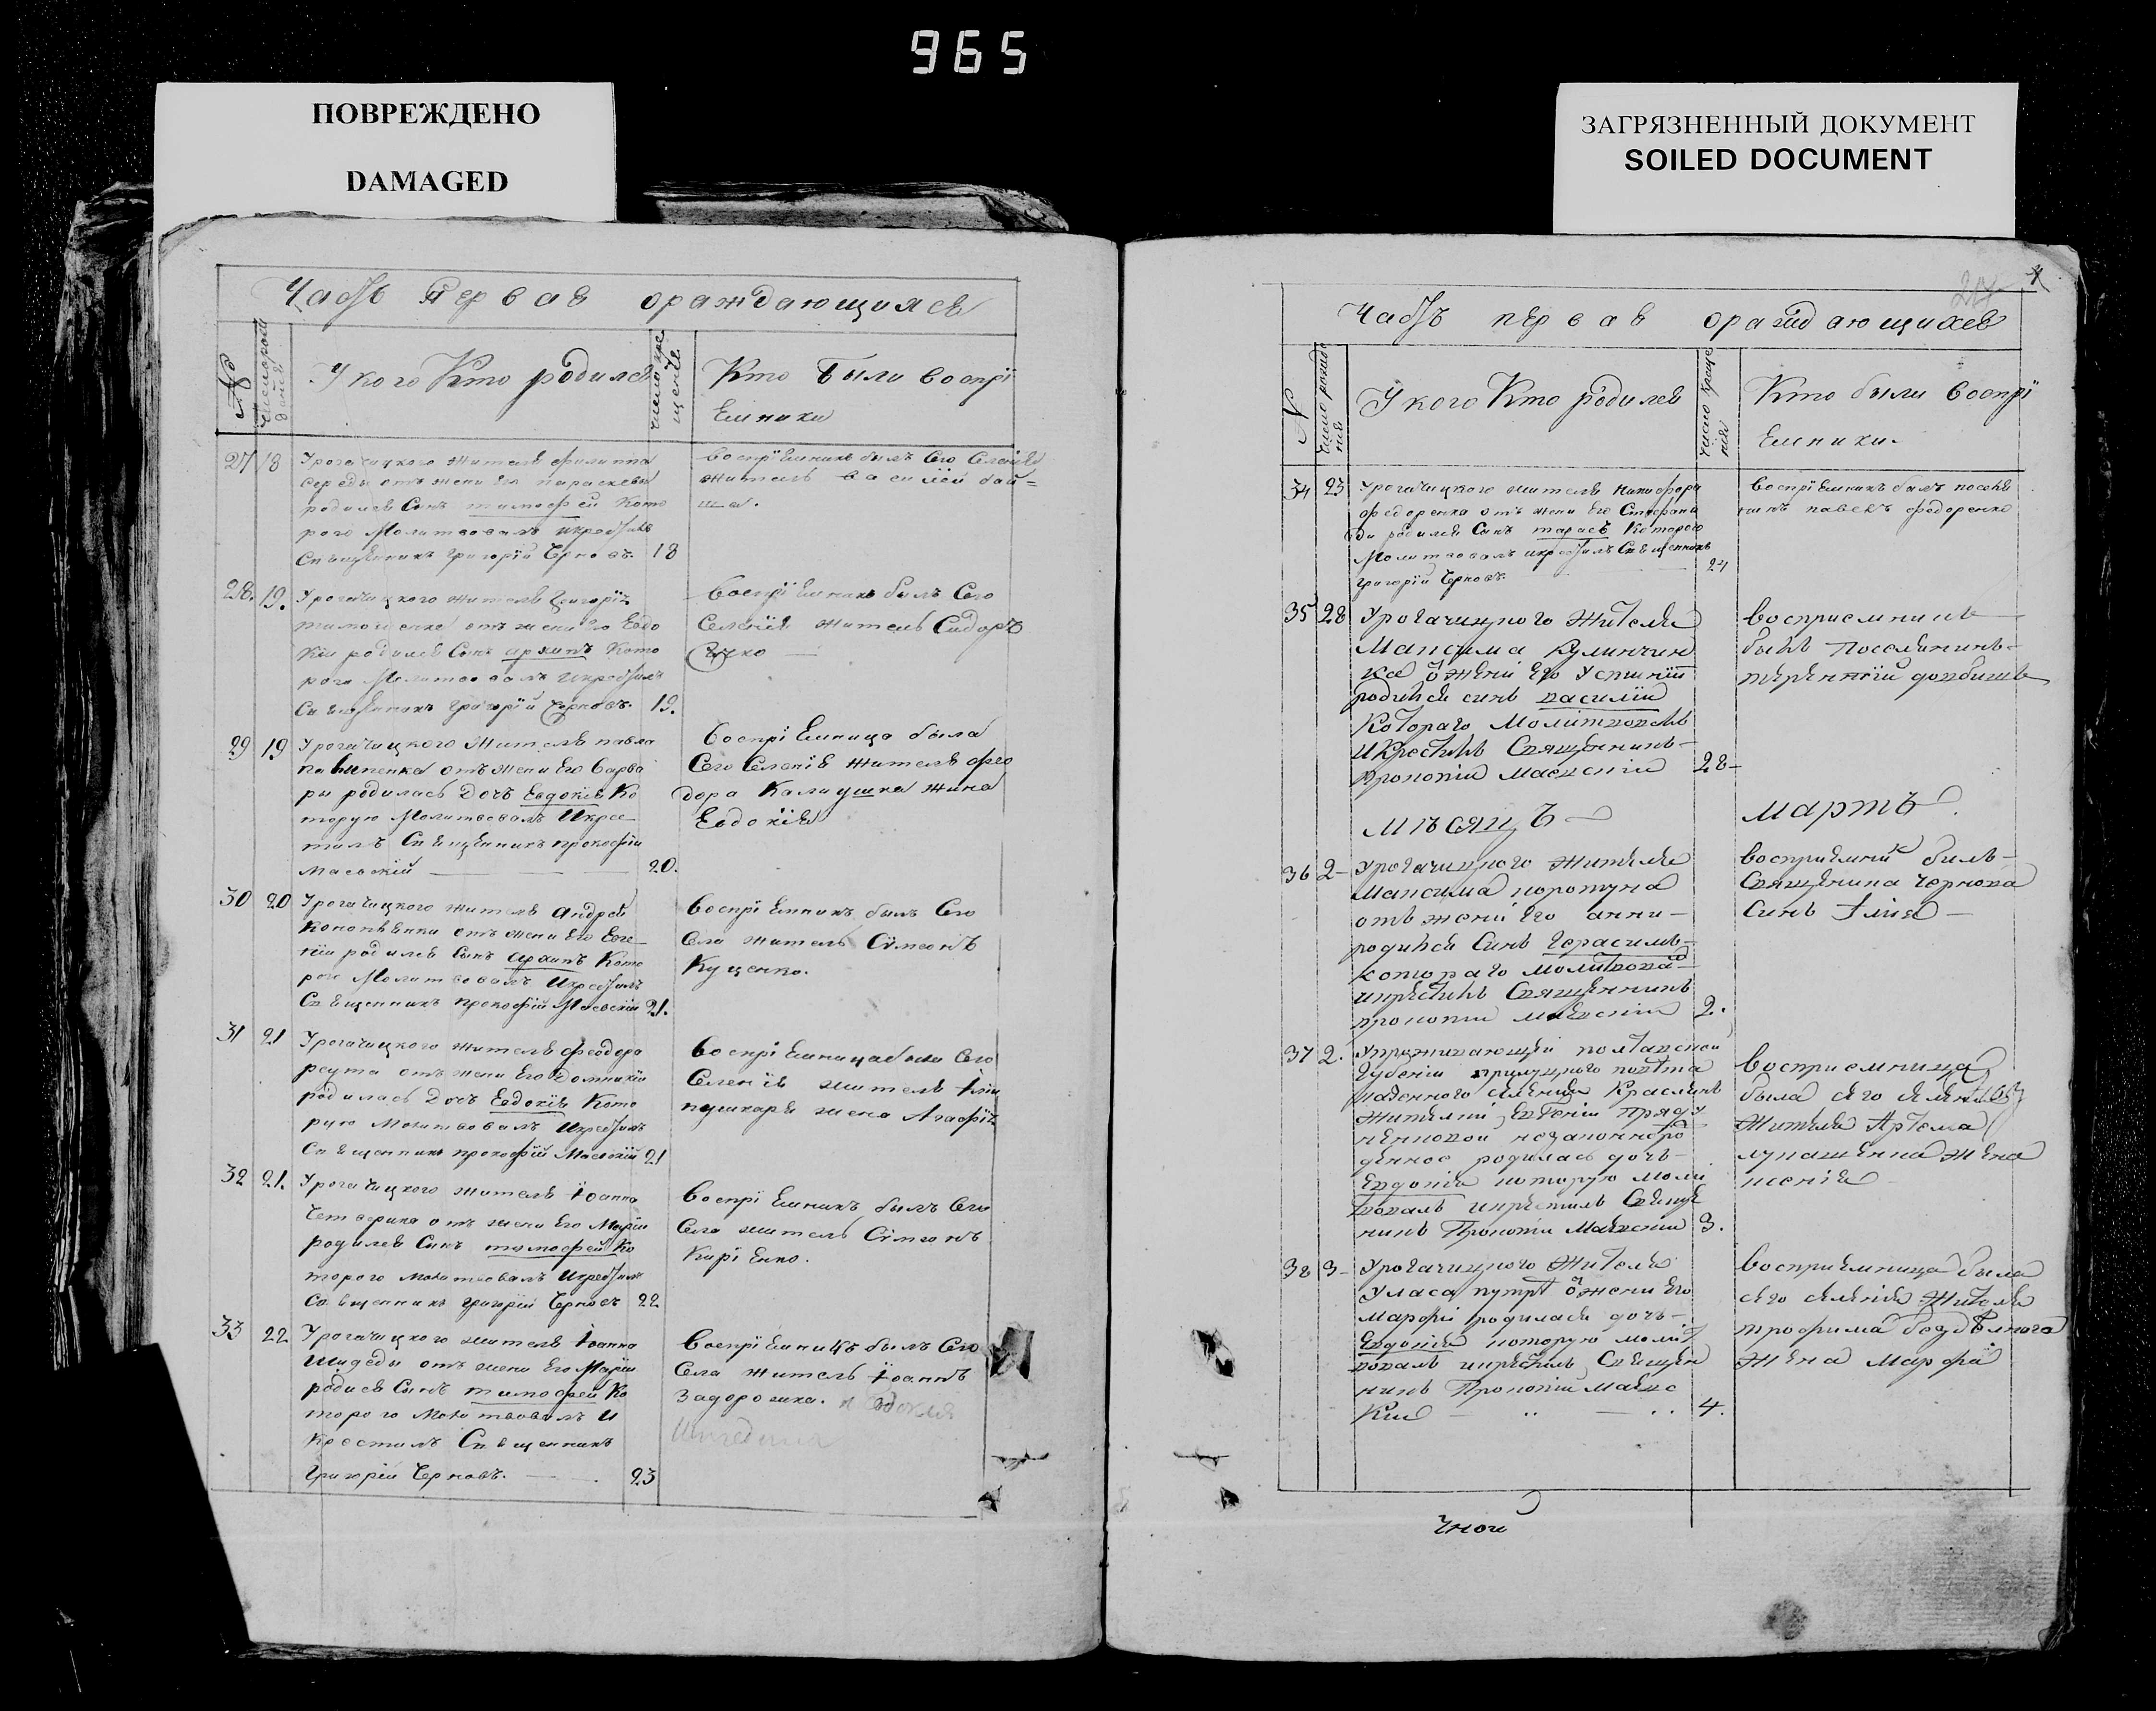 965
ПОВРЕЖДЕНО
DAMAGED
ЗАГРЯЗНЕННЫЙ ДОКУМЕНТ
SOILED DOCUMENT
Часть Первая ораждающияся
№
У кого Кто родился
Кто были воспрі
емники
27 18 Урогачицкого жителя филиппа
середы отъ жены его параскевы
родился Сынъ тимофей Кото
рого Молитвовалъ икрестилъ
Священникъ Григорій Черновъ. 18
воспріемникъ былъ Сего Селенія
житель василей бай=
28. 19. Урогачицкого жителя Григорія
отъ жены его Евдо
кіи родился Сынъ архипъ Кото
рого Молитвовалъ Икрестилъ
Священникъ Григорій Черновъ. 19.
Воспріемникъ былъ Сего
Селенія житель Сидоръ
29 19 Урогачицкого Жителя павла
отъ жены Его Варва
ры родилась Дочь Евдокія Ко
торую Молитвовалъ Икрес
тилъ Священникъ прокофій
Маевскій 20.
Воспріемница была
Сего Селенія жителя фео
дора Калаушка жена
Евдокія
30 20 Урогачицкого жителя Андрея
Конопленки отъ жены Его Евге
ніи родился Сынъ архипъ Кото
рого Молитвовалъ Икрестилъ
Священникъ прокофій Маевскій 21.
Воспріемникъ былъ Сего
Села житель Сімеонъ
Куценко.
31 21 Урогачицкого жителя феодора
реута отъ жены Его Домникіи
родилась Дочь Евдокія Кото
рую Молитвовалъ Икрестилъ
Священникъ прокофій Маевскій 21
Воспріемница была Сего
Селенія жителя
пушкаря жена Агафія
32 21. Урогачицкого жителя Іоанна
Четверика отъ жены Его Маріи
родился Сынъ тимофей Ко
торого Молитвовалъ Икрестилъ
Священникъ Григорій Черновъ 22
Воспріемникъ былъ Сего
Села житель Сімеонъ
Кирієнко.
33 22 Урогачицкого жителя Іоанна
Шидеды отъ жены Его Маріи
родися Сынъ тимофей Ко
торого Молитвовалъ И
Крестилъ Священникъ
Григорій Черновъ. 23
Воспріемникъ былъ Сего
Села житель Іоаннъ
Задорожко.
Часть первая ораждающихся
N
число рожде
нія
У кого Кто родился
число креще
нія
Кто были воспрі
емники.
34 23 Урогачицкого жителя Никифора
федоренка отъ жены Его Стефани
ди родился Сынъ тарасъ Которого
Молитвовалъ икрестилъ Священникъ
Григорій Черновъ. 24
Воспріемникъ былъ поселя
нинъ павелъ федоренко
35 28 Урогачицкого Жителя
Максима Кулинчен
ка ѿ жени Его Устиніи
родился синъ василій
Котораго Молитвовалъ
Икрестилъ Священникъ
Прокопій Маевскій 28
восприемникъ
былъ Поселянинъ
терентій довбишъ
Мѣсяцъ мартъ
36 2 Урогачицкого жителя
Максима коротуна
отъ жени его анни
родился Синъ Герасимъ
котораго молитвова
икрестилъ Священникъ
прокопій маевскій 2.
восприемник билъ
Священика Чернова
Синъ Ілия
37 2. Упроживающей полтавской
Губеніи прилуцкого повѣта
Жителки Евгеніи
родилась дочь
Евдокія которую моли
твовалъ икрестилъ Свяще
никъ Прокопій Маевскій 3.
восприемница
была сего селенія
Жителя Артема
лукашенка жена
ксенія
38 3 Урогачицкого Жителя
Уласа путря ѿ жени Его
Марфи родилася дочь
Евдокія которую молит
вовалъ икрестилъ Священ
никъ Прокопій Маевс
Кій 4.
восприемница была
сего селенія Жителя
трофима бездѣлного
Жена Марфа